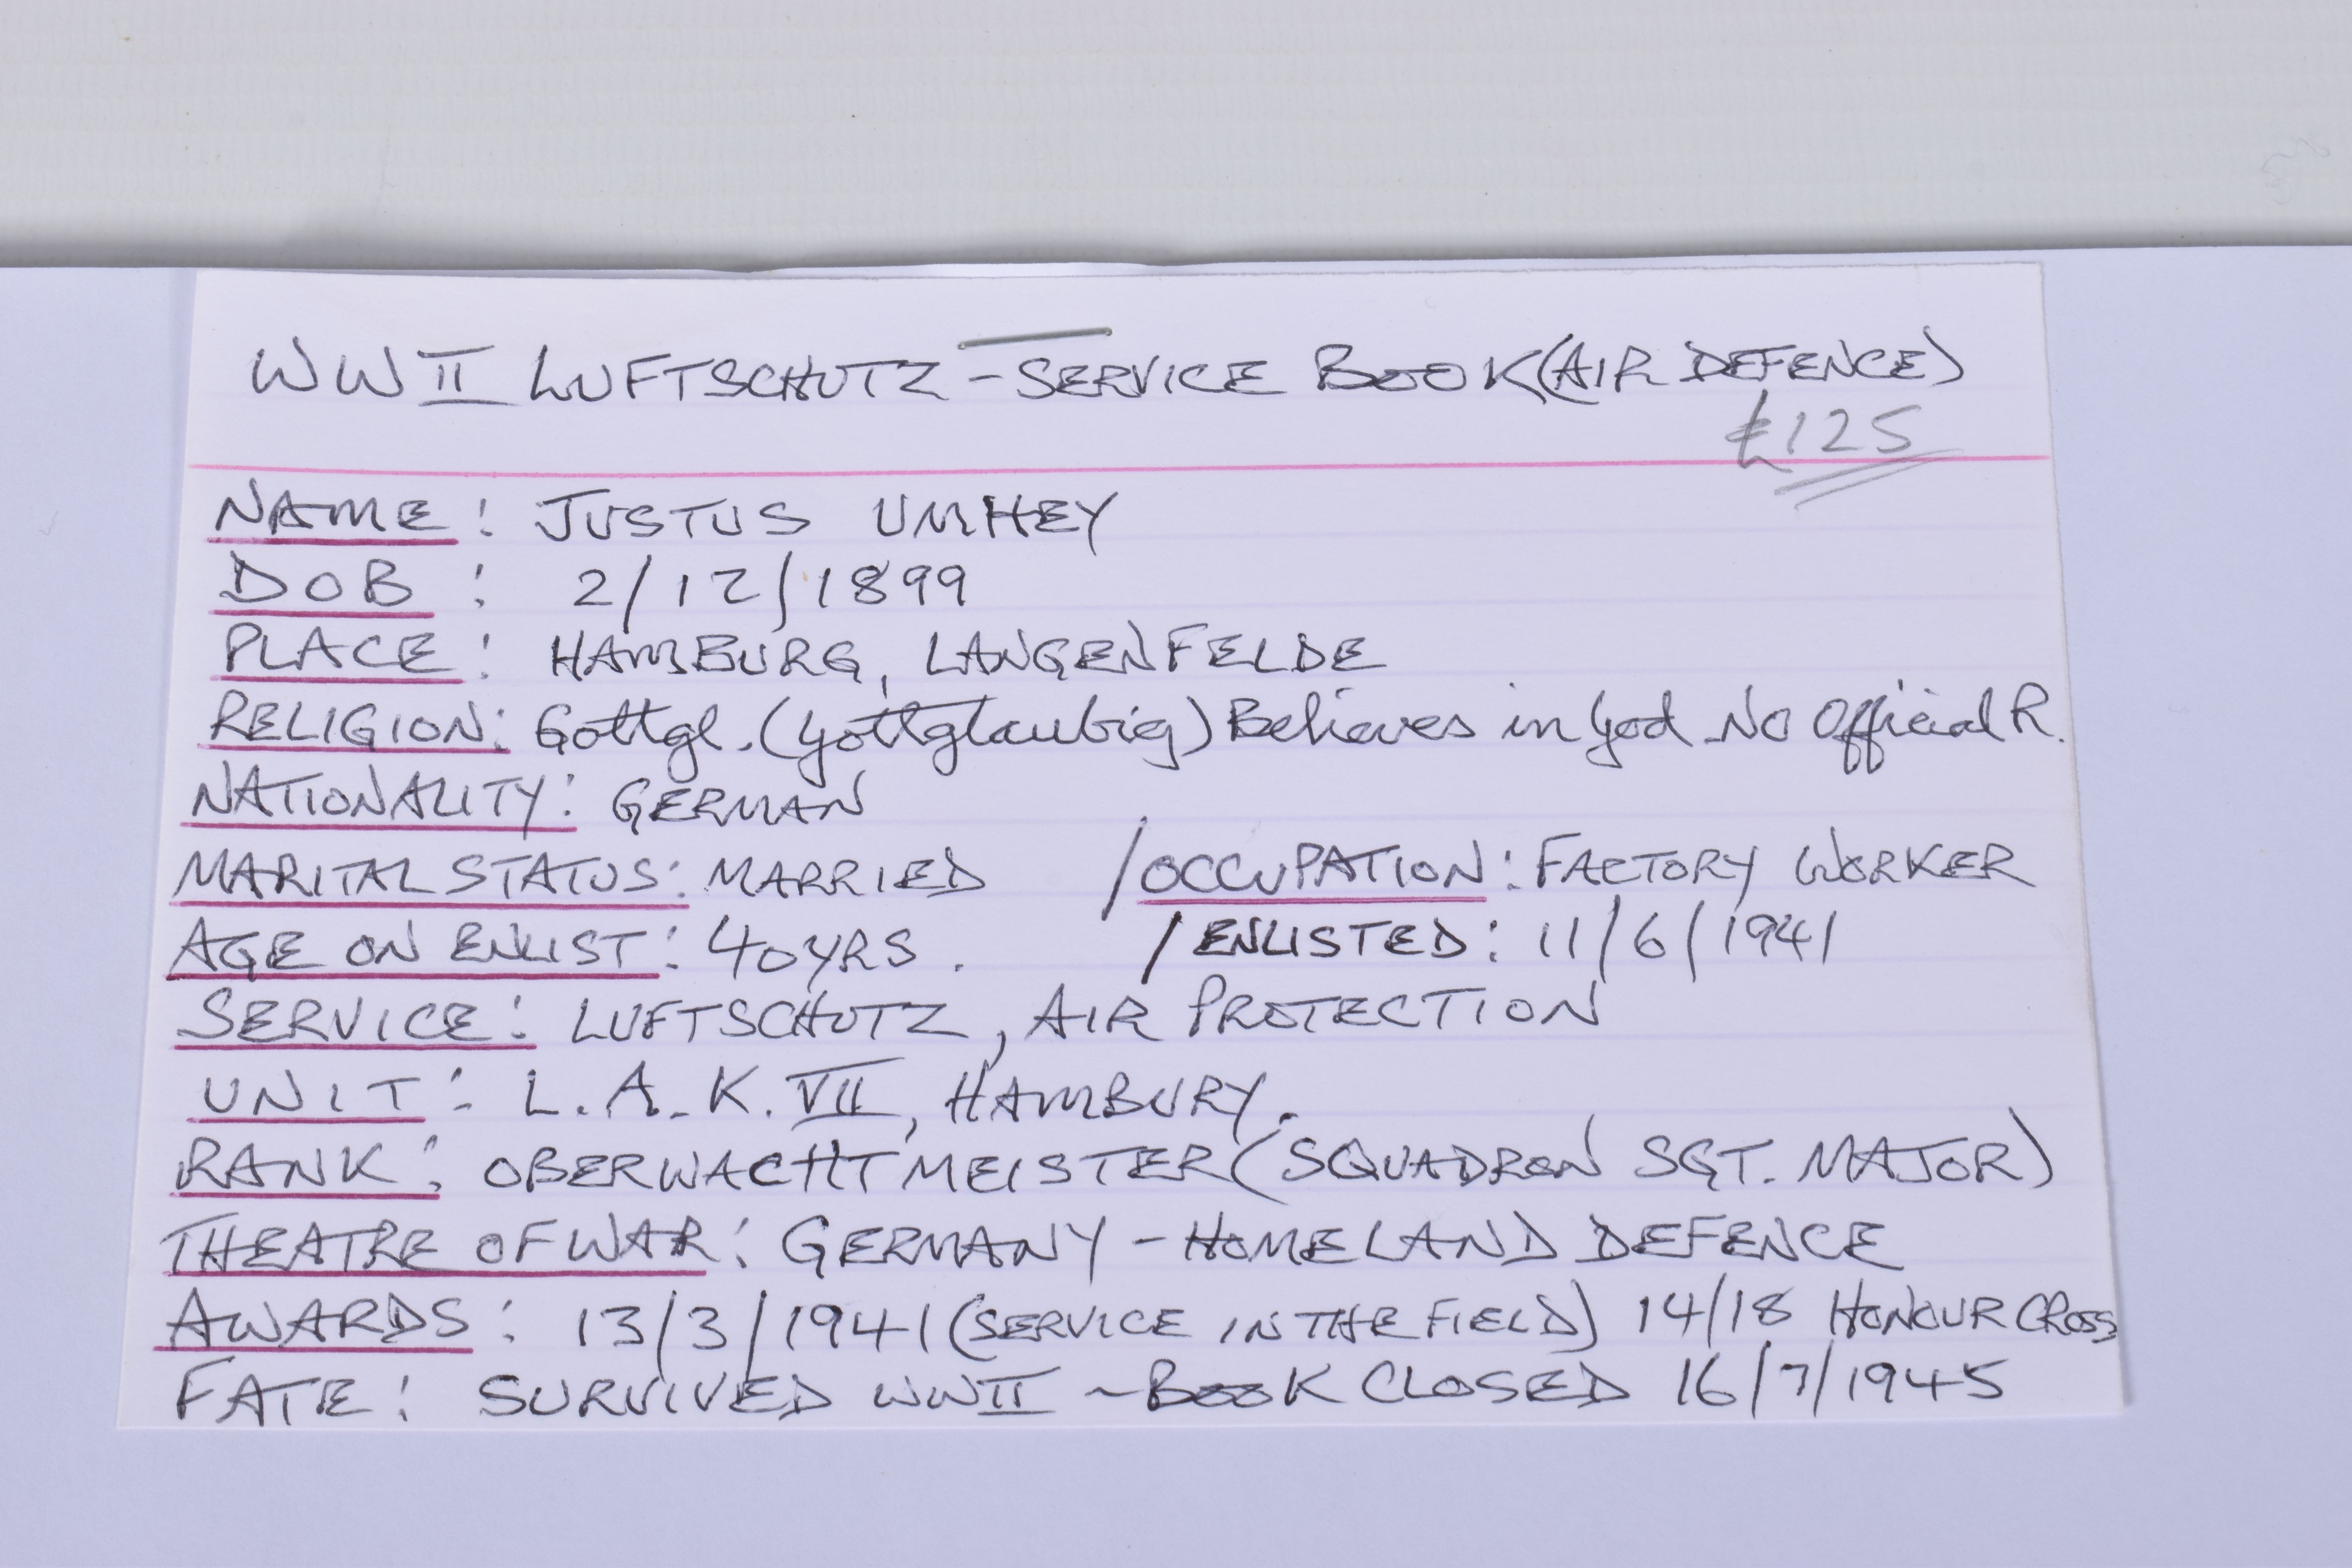 WW II LUFTSCHUTZ - SERVICE BOOK (AIR DEFENCE)
£125
NAME: JUSTUS UMHEY
DOB: 2/12/1899
PLACE: HAMBURG, LANGENFELDE
RELIGION: Gottgl. (gottglaubig) Believes in God - No Official R.
NATIONALITY: GERMAN
MARITAL STATUS: MARRIED / OCCUPATION: FACTORY WORKER
AGE ON ENLIST: 40YRS. / ENLISTED: 11/6/1941
SERVICE: LUFTSCHUTZ, AIR PROTECTION
UNIT: L.A.K. VII, HAMBURY.
RANK: OBERWACHTMEISTER (SQUADRON SGT. MAJOR)
THEATRE OF WAR: GERMANY - HOMELAND DEFENCE
AWARDS: 13/3/1941 (SERVICE IN THE FIELD) 14/18 HONOUR CROSS
FATE: SURVIVED WWII - BOOK CLOSED 16/7/1945